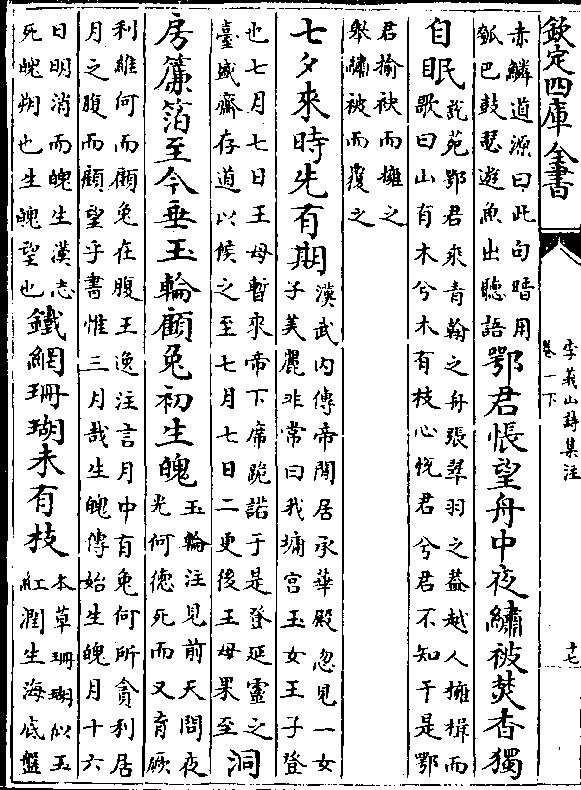 欽定四庫全書
李義山詩集注
卷一下
十七
赤鱗道源曰此句暗用
瓠巴鼓瑟遊魚出聽語
鄂君悵望舟中夜繡被焚香獨
自眠
說苑鄂君乘青翰之舟張翠羽之蓋越人擁楫而
歌曰山有木兮木有枝心悅君兮君不知于是鄂
君揄袂而擁之
舉繡被而覆之
七夕來時先有期
漢武内傳帝閒居承華殿忽見一女
子美麗非常曰我墉宮玉女王子登
也七月七日王母暫來帝下席跪諾于是登延靈之
臺盛齋存道以候之至七月七日二更後王母果至
洞
房簾箔至今垂玉輪顧兔初生魄
玉輪注見前天問夜
光何德死而又育厥
利維何而顧兔在腹王逸注言月中有兔何所貪利居
月之腹而顧望乎書惟三月哉生魄傳始生魄月十六
日明消而魄生漢志
死魄朔也生魄望也
鐵網珊瑚未有枝
本草珊瑚似玉
紅潤生海底盤